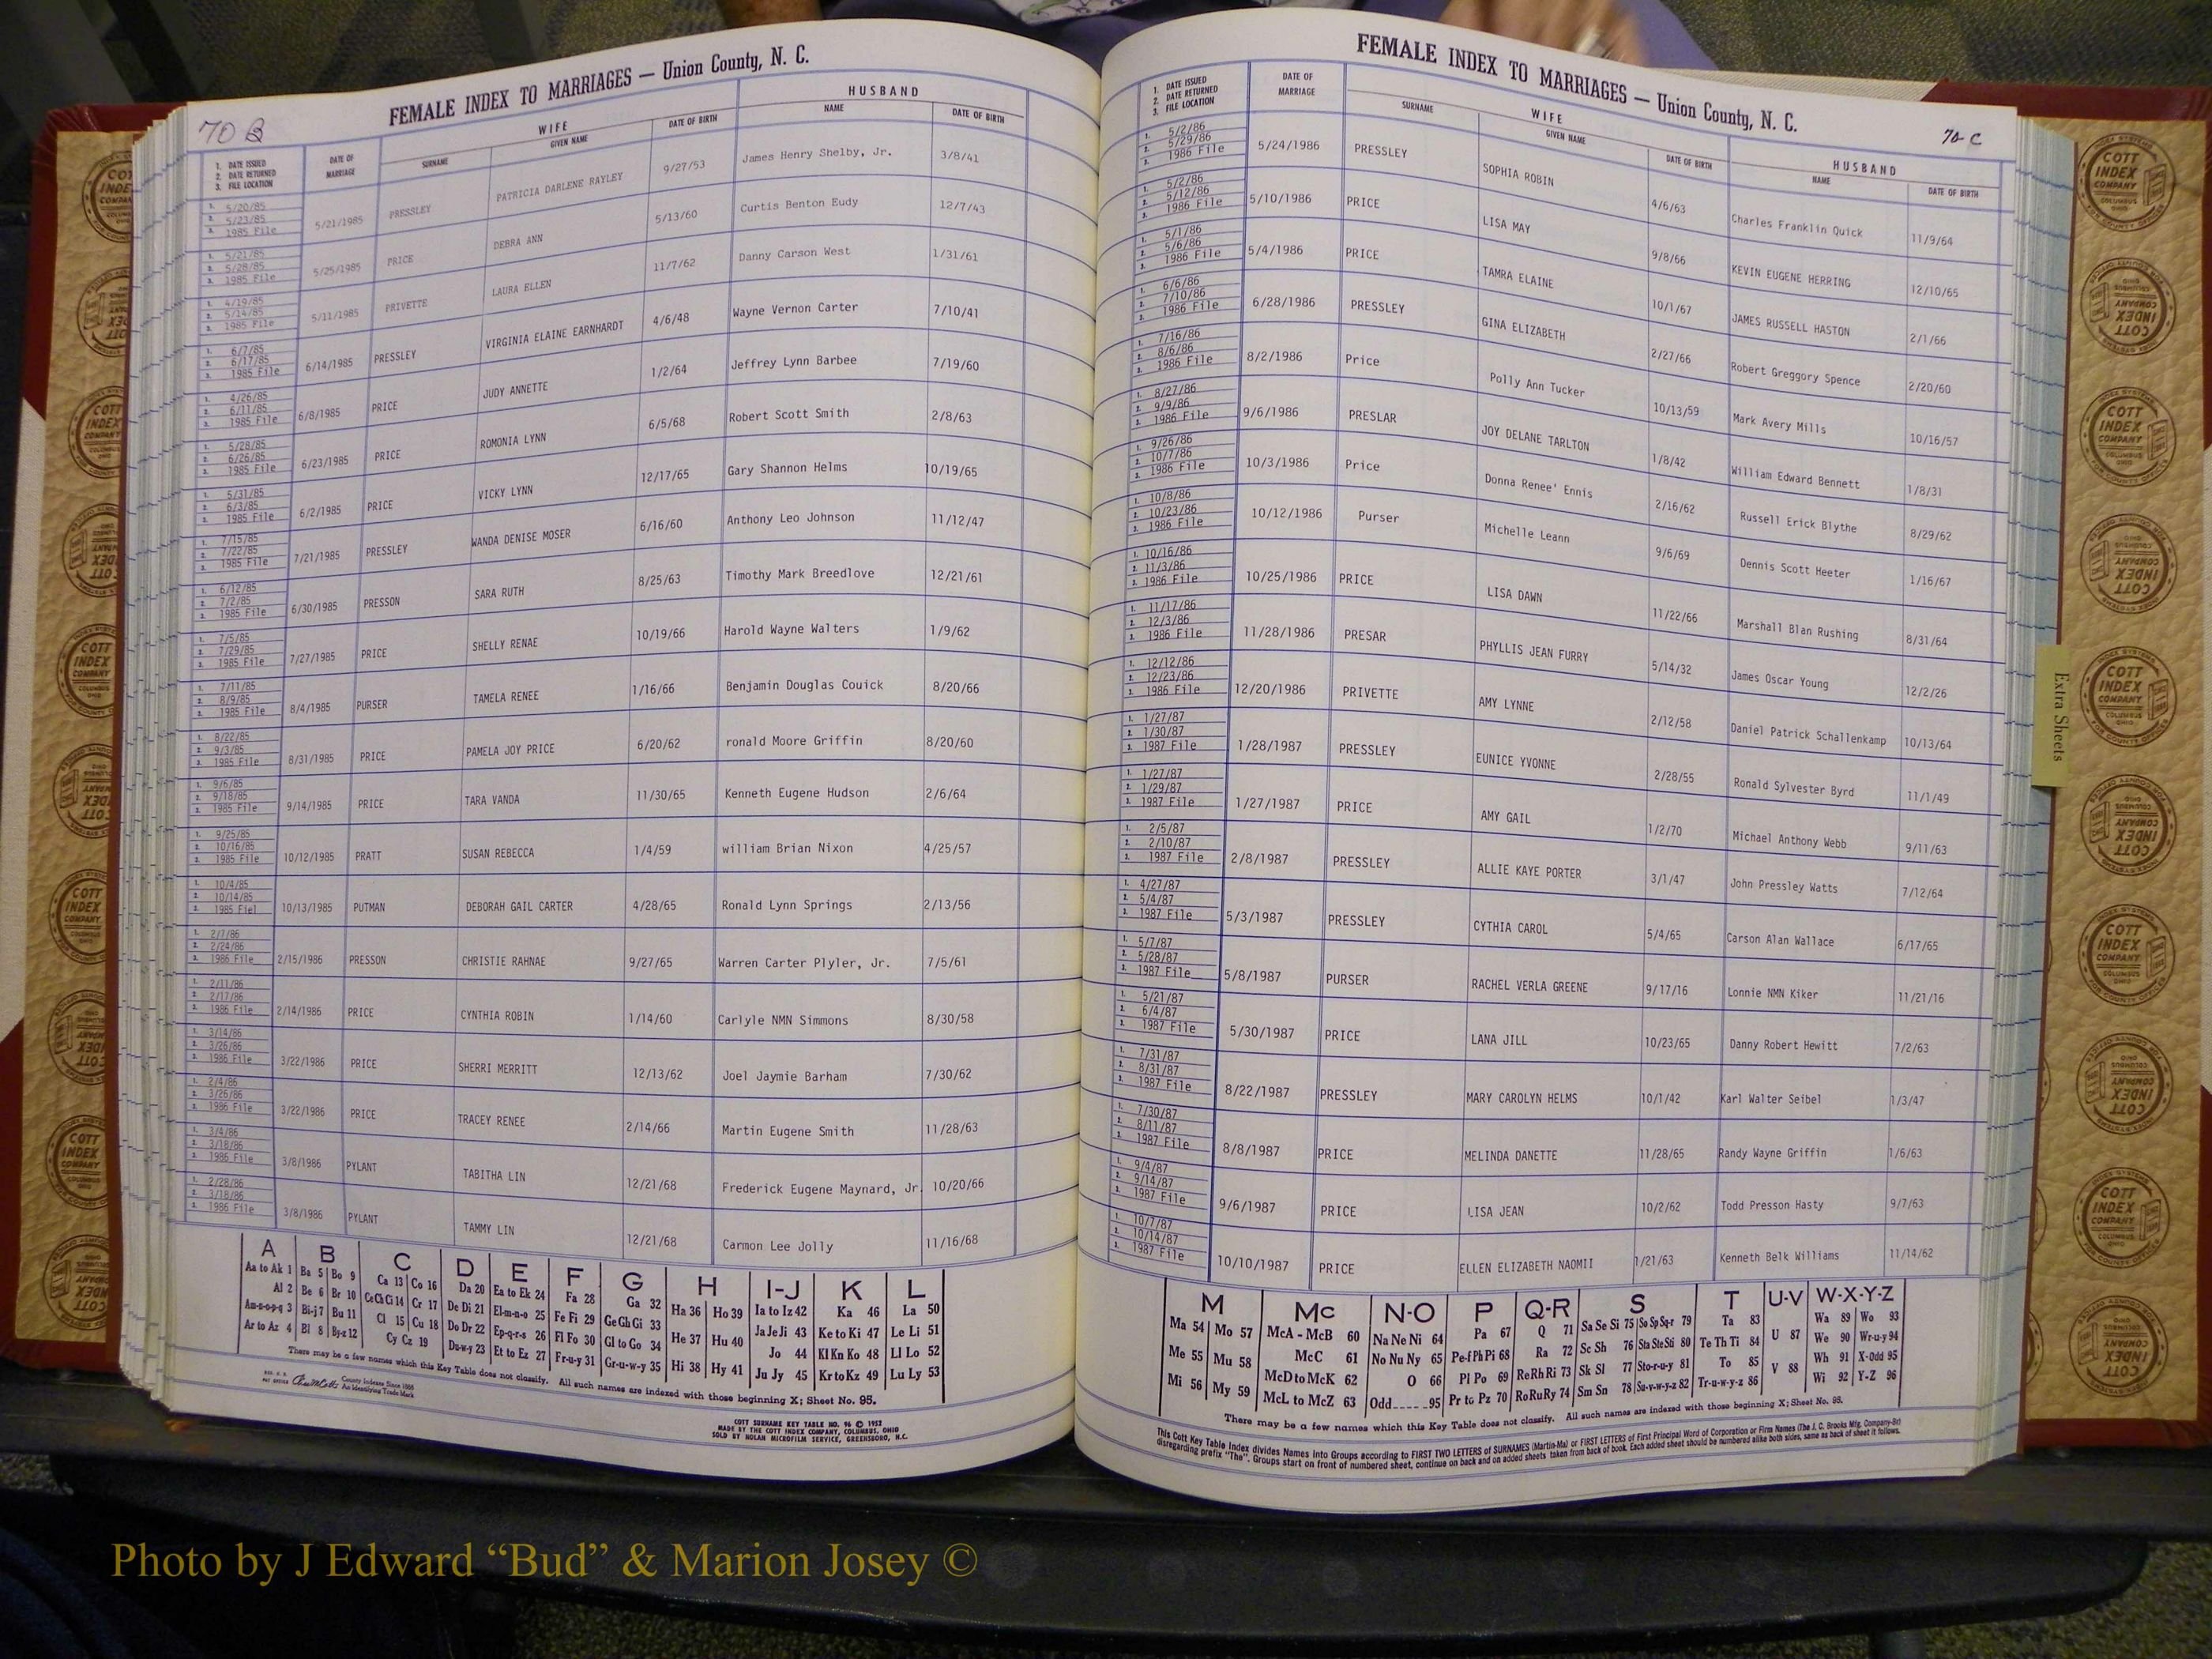 FEMALE INDEX TO MARRIAGES — Union County, N. C.
70 B
1. DATE ISSUED 2. DATE RETURNED 3. FILE LOCATION DATE OF MARRIAGE SURNAME WIFE GIVEN NAME DATE OF BIRTH HUSBAND NAME DATE OF BIRTH
1. 5/20/85 2. 5/23/85 3. 1985 File 5/21/1985 PRESSLEY PATRICIA DARLENE RAYLEY 9/27/53 James Henry Shelby, Jr. 3/8/41
1. 5/21/85 2. 5/28/85 3. 1985 File 5/25/1985 PRICE DEBRA ANN 5/13/60 Curtis Benton Eudy 12/7/43
1. 4/19/85 2. 5/14/85 3. 1985 File 5/11/1985 PRIVETTE LAURA ELLEN 11/7/62 Danny Carson West 1/31/61
1. 6/7/85 2. 6/17/85 3. 1985 File 6/14/1985 PRESSLEY VIRGINIA ELAINE EARNHARDT 4/6/48 Wayne Vernon Carter 7/10/41
1. 4/26/85 2. 6/11/85 3. 1985 File 6/8/1985 PRICE JUDY ANNETTE 1/2/64 Jeffrey Lynn Barbee 7/19/60
1. 5/28/85 2. 6/26/85 3. 1985 File 6/23/1985 PRICE ROMONIA LYNN 6/5/68 Robert Scott Smith 2/8/63
1. 5/31/85 2. 6/3/85 3. 1985 File 6/2/1985 PRICE VICKY LYNN 12/17/65 Gary Shannon Helms 10/19/65
1. 7/15/85 2. 7/22/85 3. 1985 File 7/21/1985 PRESSLEY WANDA DENISE MOSER 6/16/60 Anthony Leo Johnson 11/12/47
1. 6/12/85 2. 7/2/85 3. 1985 File 6/30/1985 PRESSON SARA RUTH 8/25/63 Timothy Mark Breedlove 12/21/61
1. 7/5/85 2. 7/29/85 3. 1985 File 7/27/1985 PRICE SHELLY RENAE 10/19/66 Harold Wayne Walters 1/9/62
1. 7/11/85 2. 8/9/85 3. 1985 File 8/4/1985 PURSER TAMELA RENEE 1/16/66 Benjamin Douglas Couick 8/20/66
1. 8/22/85 2. 9/3/85 3. 1985 File 8/31/1985 PRICE PAMELA JOY PRICE 6/20/62 ronald Moore Griffin 8/20/60
1. 9/6/85 2. 9/18/85 3. 1985 File 9/14/1985 PRICE TARA VANDA 11/30/65 Kenneth Eugene Hudson 2/6/64
1. 9/25/85 2. 10/16/85 3. 1985 File 10/12/1985 PRATT SUSAN REBECCA 1/4/59 william Brian Nixon 4/25/57
1. 10/4/85 2. 10/14/85 3. 1985 Fiel 10/13/1985 PUTMAN DEBORAH GAIL CARTER 4/28/65 Ronald Lynn Springs 2/13/56
1. 2/7/86 2. 2/24/86 3. 1986 File 2/15/1986 PRESSON CHRISTIE RAHNAE 9/27/65 Warren Carter Plyler, Jr. 7/5/61
1. 2/11/86 2. 2/17/86 3. 1986 File 2/14/1986 PRICE CYNTHIA ROBIN 1/14/60 Carlyle NMN Simmons 8/30/58
1. 3/14/86 2. 3/26/86 3. 1986 File 3/22/1986 PRICE SHERRI MERRITT 12/13/62 Joel Jaymie Barham 7/30/62
1. 2/4/86 2. 3/26/86 3. 1986 File 3/22/1986 PRICE TRACEY RENEE 2/14/66 Martin Eugene Smith 11/28/63
1. 3/4/86 2. 3/18/86 3. 1986 File 3/8/1986 PYLANT TABITHA LIN 12/21/68 Frederick Eugene Maynard, Jr. 10/20/66
1. 2/28/86 2. 3/18/86 3. 1986 File 3/8/1986 PYLANT TAMMY LIN 12/21/68 Carmon Lee Jolly 11/16/68
A B C D E F G H I-J K L
Aa to Ak 1 Ba 5 Bo 9 Ca 13 Co 16 Da 20 Ea to Ek 24 Fa 28 Ga 32 Ha 36 Ho 39 Ia to Iz 42 Ka 46 La 50
Al 2 Be 6 Br 10 Ce Ch Ci 14 Cr 17 De Di 21 El-m-n-o 25 Fe Fi 29 Ge Gh Gi 33 He 37 Hu 40 Ja Je Ji 43 Ke to Ki 47 Le Li 51
Am-n-o-p-q 3 Bi-j 7 Bu 11 Cl 15 Cu 18 Do Dr 22 Ep-q-r-s 26 Fl Fo 30 Gl to Go 34 Hi 38 Hy 41 Jo 44 Kl Kn Ko 48 Ll Lo 52
Ar to Az 4 Bl 8 By-z 12 Cy Cz 19 Du-w-y 23 Et to Ez 27 Fr-u-y 31 Gr-u-w-y 35 Ju Jy 45 Kr to Kz 49 Lu Ly 53
There may be a few names which this Key Table does not classify. All such names are indexed with those beginning X; Sheet No. 95.
County Indexes Since 1888
An Identifying Trade Mark
COTT SURNAME KEY TABLE NO. 96 © 1952
MADE BY THE COTT INDEX COMPANY, COLUMBUS, OHIO
SOLD BY NOLAN MICROFILM SERVICE, GREENSBORO, N.C.
FEMALE INDEX TO MARRIAGES — Union County, N. C.
70-C
1. DATE ISSUED 2. DATE RETURNED 3. FILE LOCATION DATE OF MARRIAGE SURNAME WIFE GIVEN NAME DATE OF BIRTH HUSBAND NAME DATE OF BIRTH
1. 5/2/86 2. 5/29/86 3. 1986 File 5/24/1986 PRESSLEY SOPHIA ROBIN 4/6/63 Charles Franklin Quick 11/9/64
1. 5/2/86 2. 5/12/86 3. 1986 File 5/10/1986 PRICE LISA MAY 9/8/66 KEVIN EUGENE HERRING 12/10/65
1. 5/1/86 2. 5/6/86 3. 1986 File 5/4/1986 PRICE TAMRA ELAINE 10/1/67 JAMES RUSSELL HASTON 2/1/66
1. 6/6/86 2. 7/10/86 3. 1986 File 6/28/1986 PRESSLEY GINA ELIZABETH 2/27/66 Robert Greggory Spence 2/20/60
1. 7/16/86 2. 8/6/86 3. 1986 File 8/2/1986 Price Polly Ann Tucker 10/13/59 Mark Avery Mills 10/16/57
1. 8/27/86 2. 9/9/86 3. 1986 File 9/6/1986 PRESLAR JOY DELANE TARLTON 1/8/42 William Edward Bennett 1/8/31
1. 9/26/86 2. 10/7/86 3. 1986 File 10/3/1986 Price Donna Renee' Ennis 2/16/62 Russell Erick Blythe 8/29/62
1. 10/8/86 2. 10/23/86 3. 1986 File 10/12/1986 Purser Michelle Leann 9/6/69 Dennis Scott Heeter 1/16/67
1. 10/16/86 2. 11/3/86 3. 1986 File 10/25/1986 PRICE LISA DAWN 11/22/66 Marshall Blan Rushing 8/31/64
1. 11/17/86 2. 12/3/86 3. 1986 File 11/28/1986 PRESAR PHYLLIS JEAN FURRY 5/14/32 James Oscar Young 12/2/26
1. 12/12/86 2. 12/23/86 3. 1986 File 12/20/1986 PRIVETTE AMY LYNNE 2/12/58 Daniel Patrick Schallenkamp 10/13/64
1. 1/27/87 2. 1/30/87 3. 1987 File 1/28/1987 PRESSLEY EUNICE YVONNE 2/28/55 Ronald Sylvester Byrd 11/1/49
1. 1/27/87 2. 1/29/87 3. 1987 File 1/27/1987 PRICE AMY GAIL 1/2/70 Michael Anthony Webb 9/11/63
1. 2/5/87 2. 2/10/87 3. 1987 File 2/8/1987 PRESSLEY ALLIE KAYE PORTER 3/1/47 John Pressley Watts 7/12/64
1. 4/27/87 2. 5/4/87 3. 1987 File 5/3/1987 PRESSLEY CYTHIA CAROL 5/4/65 Carson Alan Wallace 6/17/65
1. 5/7/87 2. 5/28/87 3. 1987 File 5/8/1987 PURSER RACHEL VERLA GREENE 9/17/16 Lonnie NMN Kiker 11/21/16
1. 5/21/87 2. 6/4/87 3. 1987 File 5/30/1987 PRICE LANA JILL 10/23/65 Danny Robert Hewitt 7/2/63
1. 7/31/87 2. 8/31/87 3. 1987 File 8/22/1987 PRESSLEY MARY CAROLYN HELMS 10/1/42 Karl Walter Seibel 1/3/47
1. 7/30/87 2. 8/11/87 3. 1987 File 8/8/1987 PRICE MELINDA DANETTE 11/28/65 Randy Wayne Griffin 1/6/63
1. 9/4/87 2. 9/14/87 3. 1987 File 9/6/1987 PRICE LISA JEAN 10/2/62 Todd Presson Hasty 9/7/63
1. 10/7/87 2. 10/14/87 3. 1987 File 10/10/1987 PRICE ELLEN ELIZABETH NAOMII 1/21/63 Kenneth Belk Williams 11/14/62
M Mc N-O P Q-R S T U-V W-X-Y-Z
Ma 54 Mo 57 McA - McB 60 Na Ne Ni 64 Pa 67 Q 71 Sa Se Si 75 So Sp Sq-r 79 Ta 83 U 87 Wa 89 Wo 93
Me 55 Mu 58 McC 61 No Nu Ny 65 Pe-f Ph Pi 68 Ra 72 Sc Sh 76 Sta Ste Sti 80 Te Th Ti 84 V 88 We 90 Wr-u-y 94
Mi 56 My 59 McD to McK 62 O 66 Pl Po 69 Re Rh Ri 73 Sk Sl 77 Sto-r-u-y 81 To 85 Wh 91 X-Odd 95
McL to McZ 63 Odd 95 Pr to Pz 70 Ro Ru Ry 74 Sm Sn 78 Su-v-w-y-z 82 Tr-u-w-y-z 86 Wi 92 Y-Z 96
There may be a few names which this Key Table does not classify. All such names are indexed with those beginning X; Sheet No. 95.
This Cott Key Table Index divides Names Into Groups according to FIRST TWO LETTERS of SURNAMES (Martin-Ma) or FIRST LETTERS of First Principal Word of Corporation or Firm Names (The J. C. Brooks Mfg. Company-Br)
disregarding prefix "The". Groups start on front of numbered sheet, continue on back and on added sheets taken from back of book. Each added sheet should be numbered alike both sides, same as back of sheet it follows.
Extra Sheets
COTT INDEX COMPANY COLUMBUS OHIO
Photo by J Edward “Bud” & Marion Josey ©